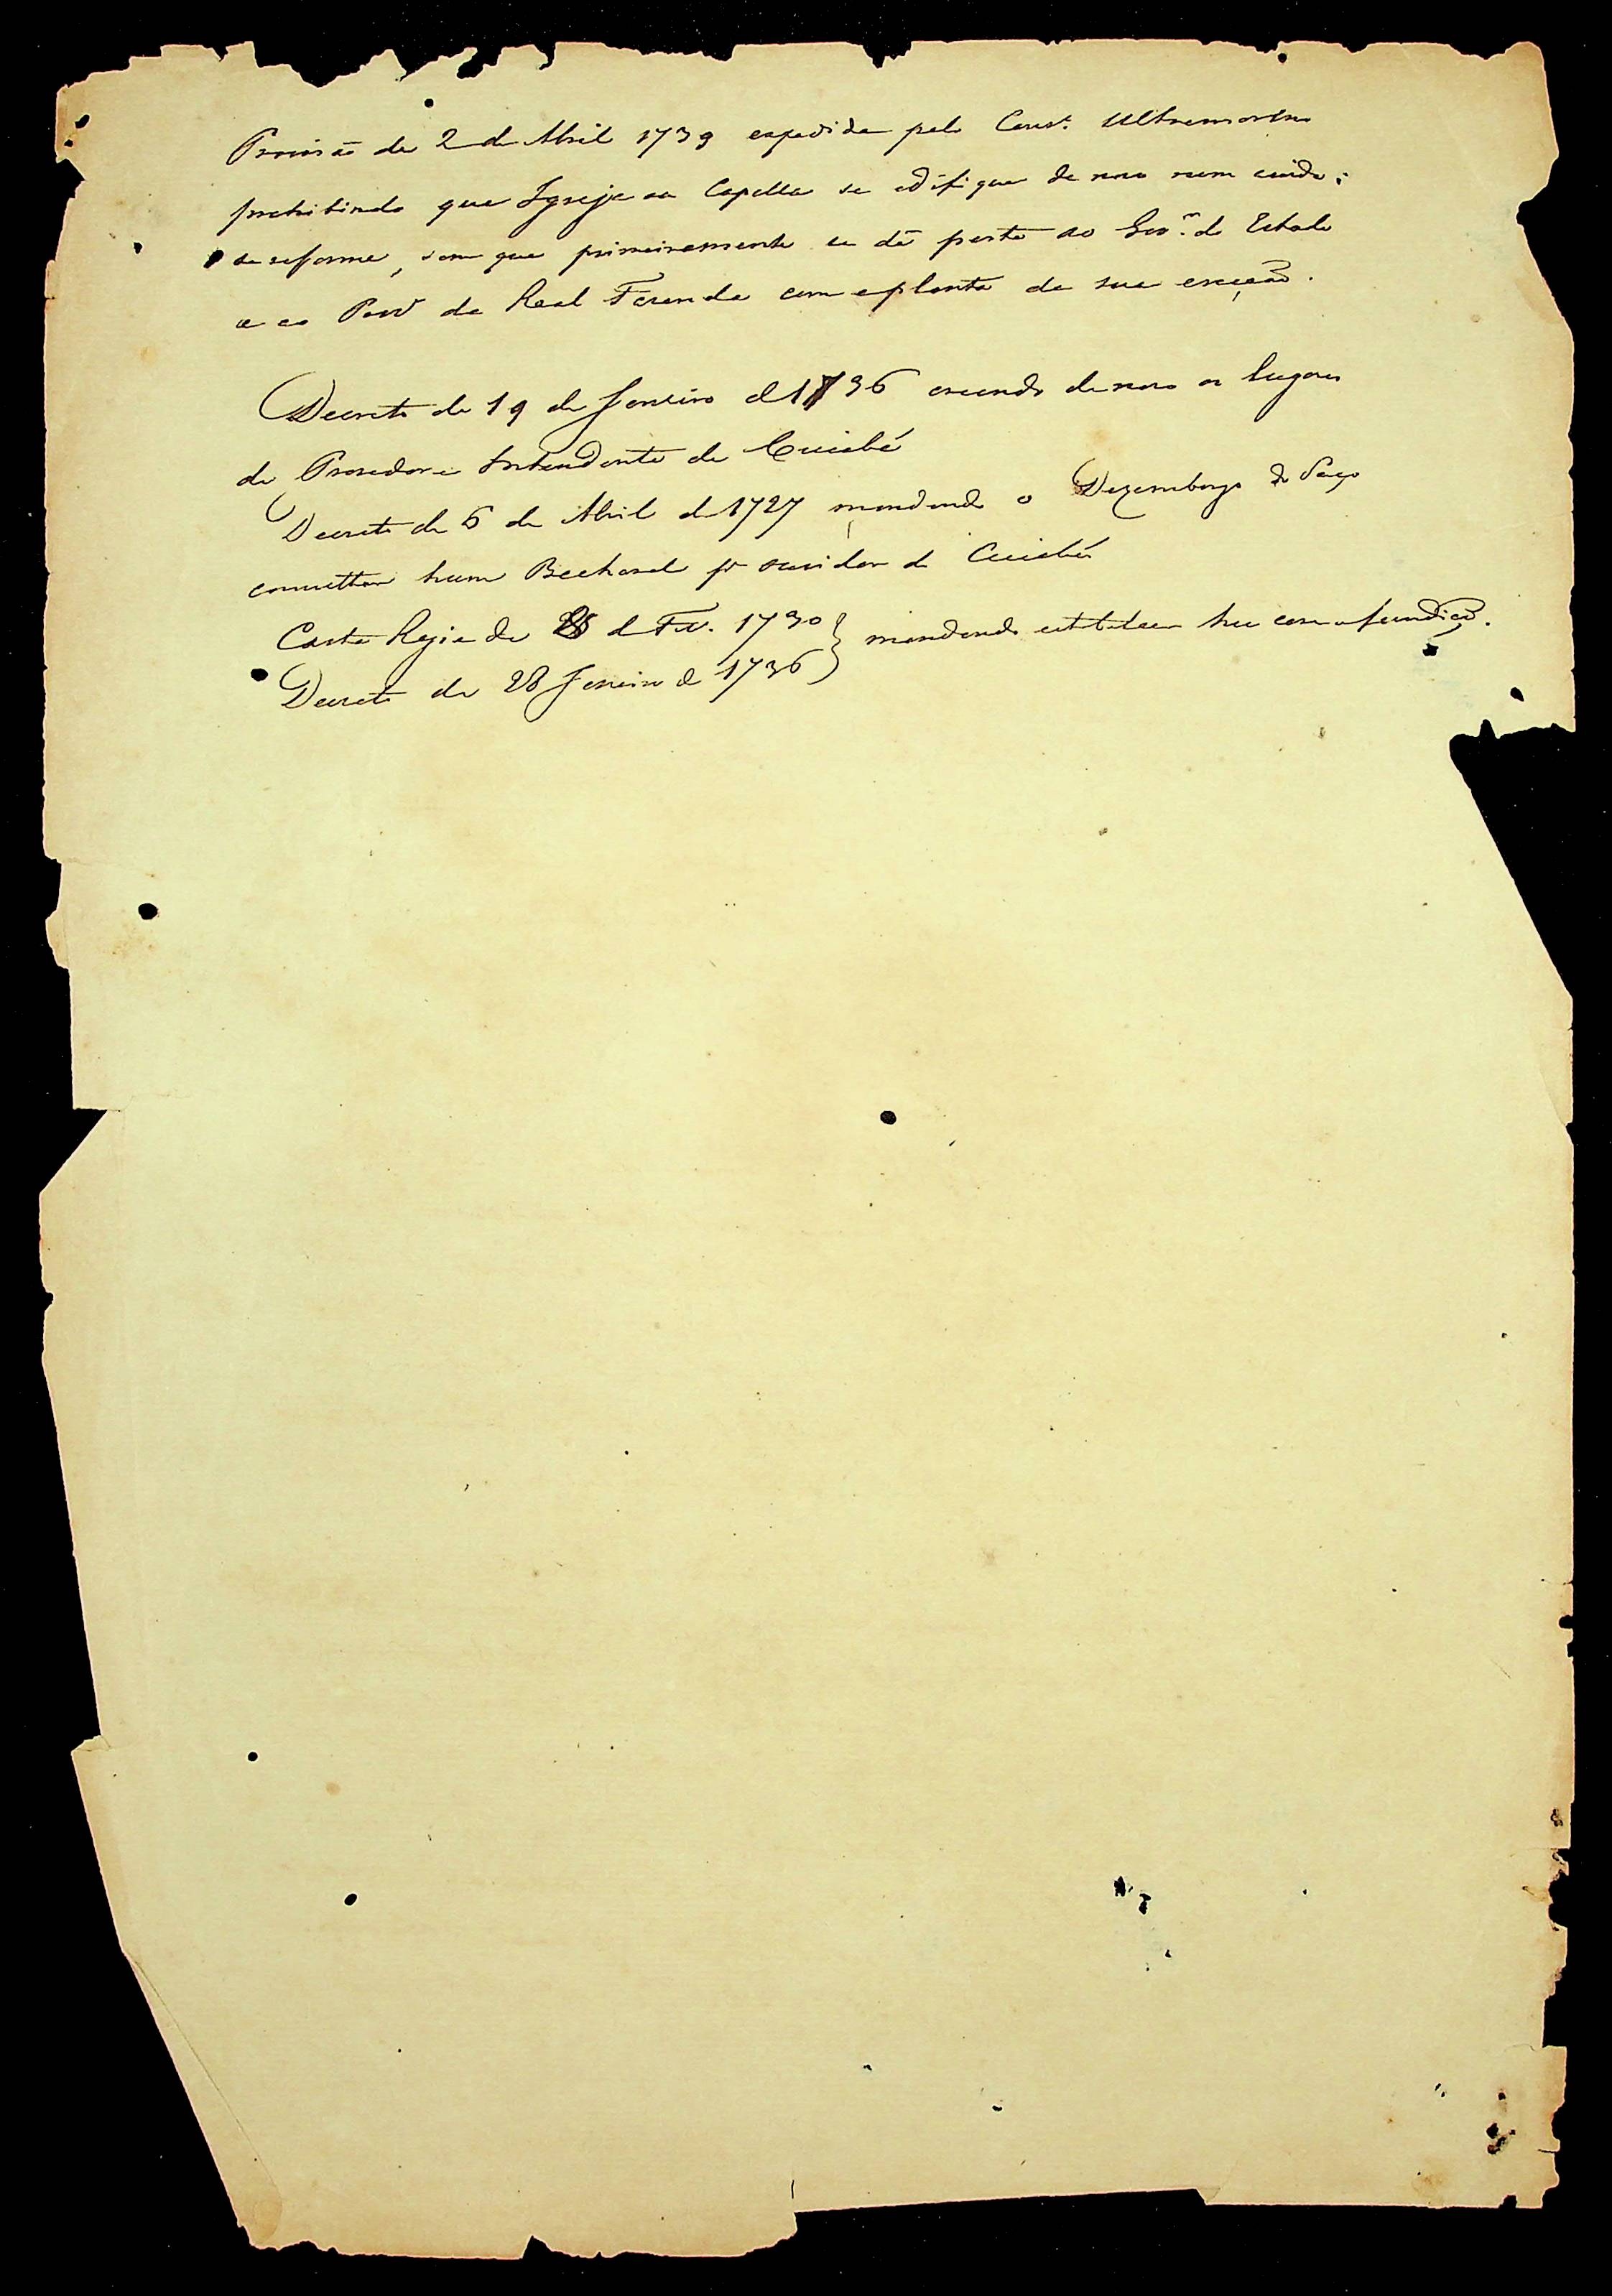 Provisão de 2 de Abril 1739 expedida pelo Cons.º Ultramarino
prohibindo que Igreja ou Capella se edifique de novo nem ainda
se reforme, sem que primeiramente se dê parte ao Gov.ºʳ do Estado
e ao Prov.ᵒʳ da Real Fazenda com a planta da sua erecção.
Decreto de 19 de Janeiro de 1736 creando de novo os lugares
de Provedor e Intendente de Cuiabá
Decreto de 6 de Abril de 1727 mandando o Dezembargo do Paço
consultar hum Bacharel pʳ ouvidor de Cuiabá
Carta Regia de de Fev. 1730 } mandando estabelecer hua casa de fundição.
Decreto de 28 Janeiro de 1736 }